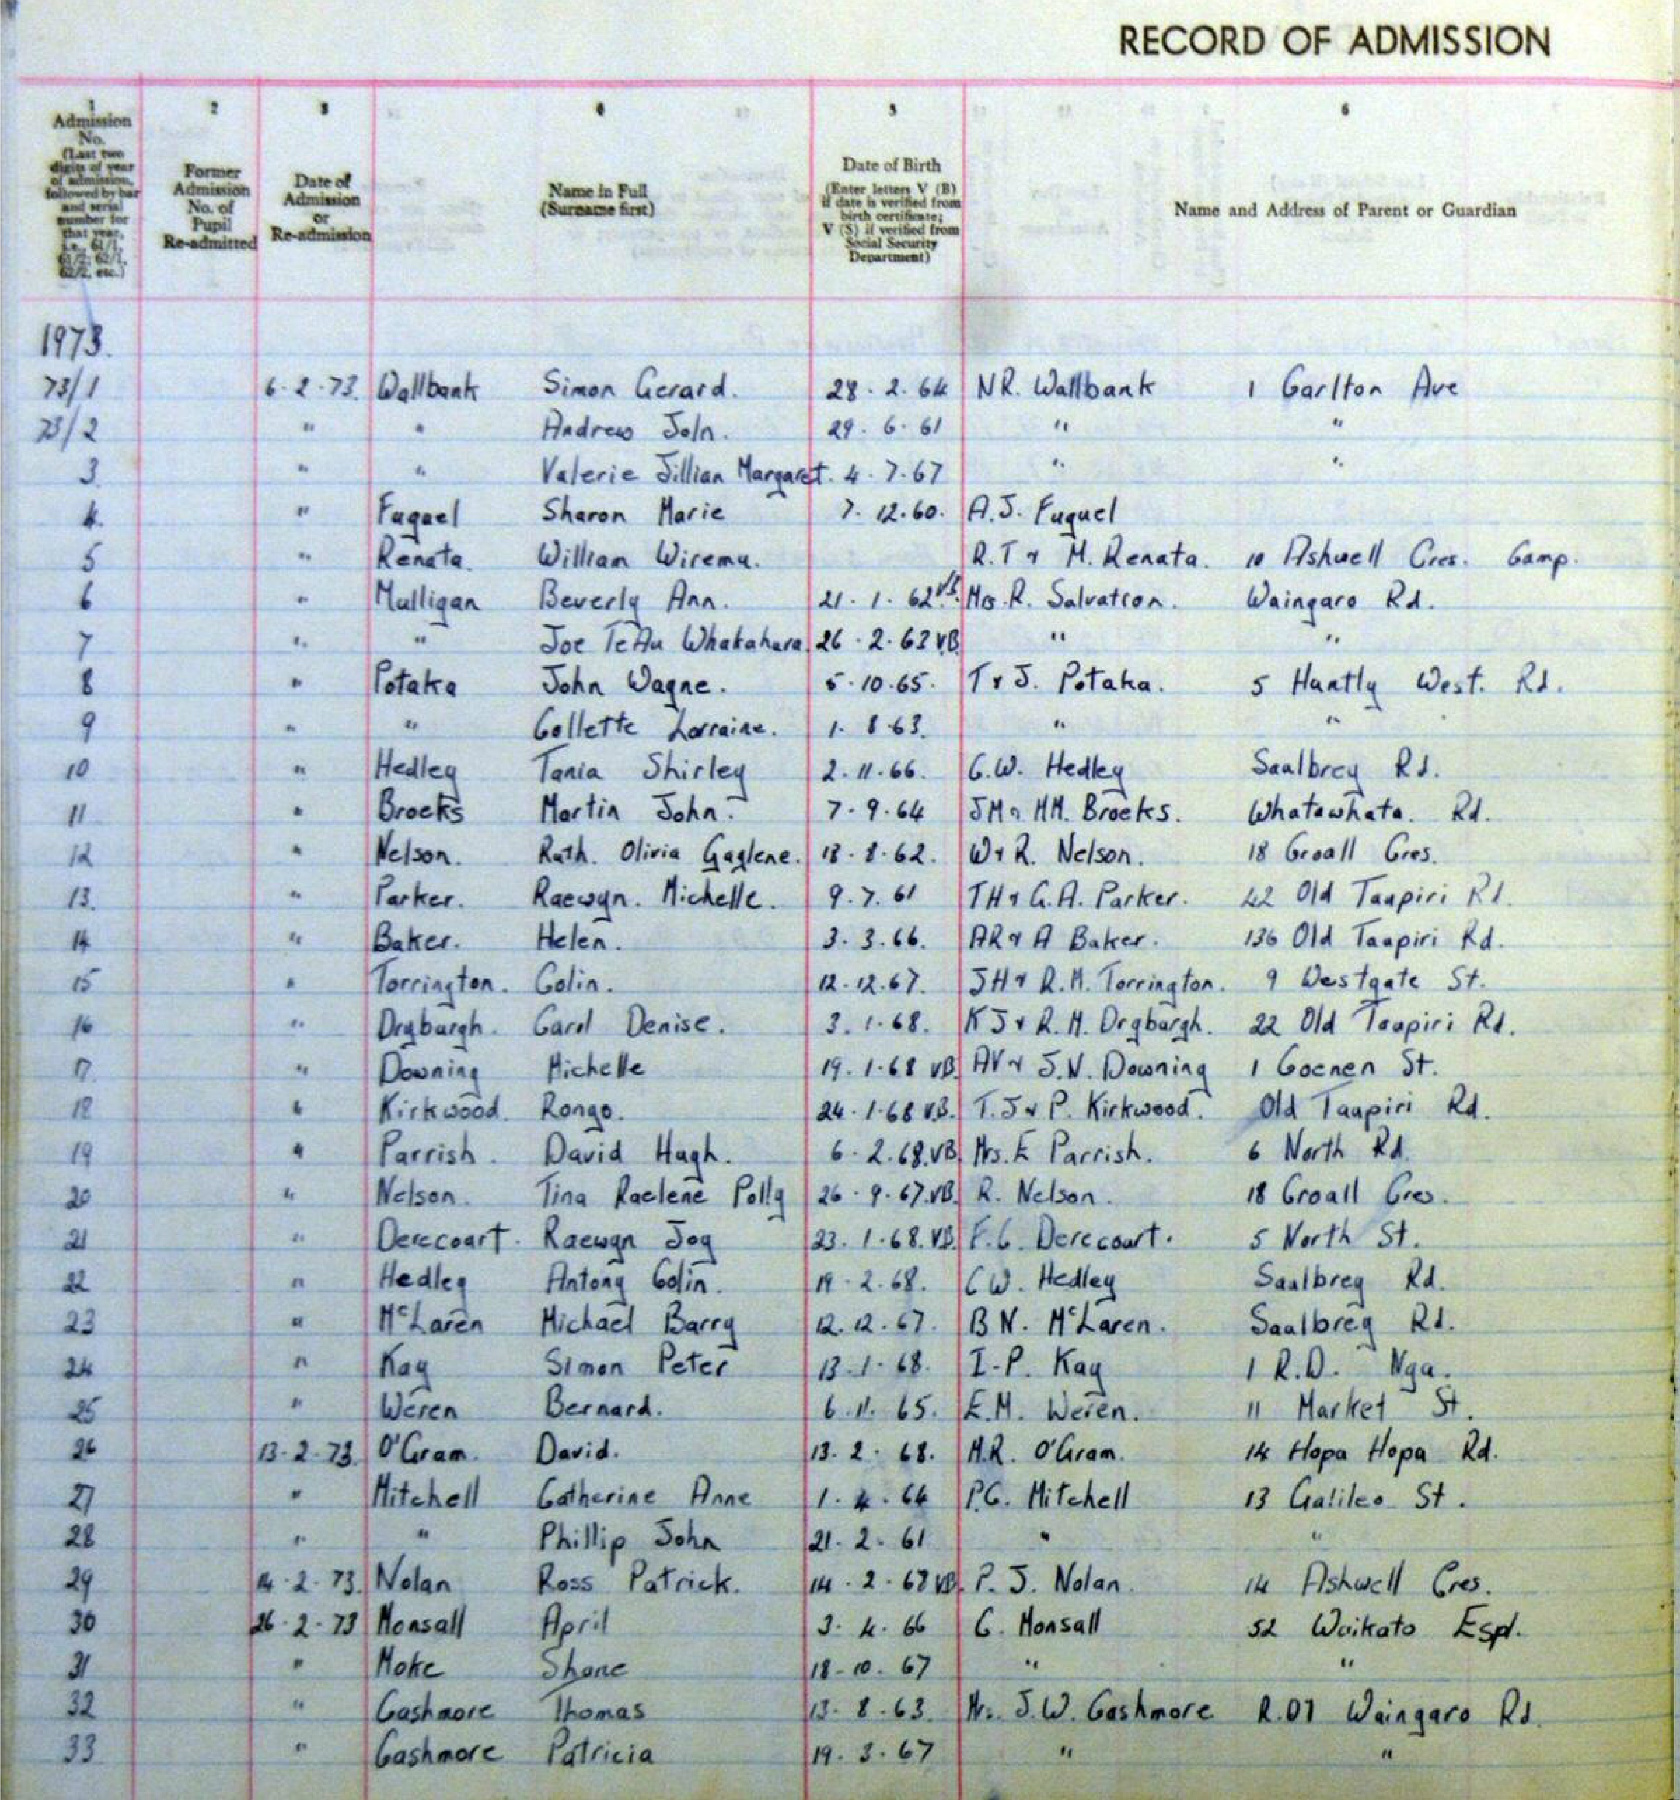 RECORD OF ADMISSION
1 2 3 4 5 6
Admission No. (Last two digits of year of admission, followed by bar and serial number for that year, i.e., 61/1, 61/2; 62/1, 62/2, etc.)
Former Admission No. of Pupil Re-admitted
Date of Admission or Re-admission
Name in Full (Surname first)
Date of Birth (Enter letters V (B) if date is verified from birth certificate; V (S) if verified from Social Security Department)
Name and Address of Parent or Guardian
1973.
73/1 6-2-73. Wallbank Simon Gerard. 28-2.64 N.R. Wallbank 1 Carlton Ave
73/2 " " Andrew John. 29-6-61 " "
3. " " Valerie Jillian Margaret. 4-7-67 " "
4. " Fuguel Sharon Marie 7.12.60. A.J. Fuguel
5 " Renata William Wiremu. R.T & M. Renata. 10 Ashwell Cres. Camp.
6 " Mulligan Beverly Ann. 21-1-62 V.B. Mrs. R. Salvation. Waingaro Rd.
7 " " Joe TeAu Whakahura. 26-2-63 V.B. " "
8 " Potaka John Wayne. 5-10-65. T & J. Potaka. 5 Huntly West. Rd.
9 " " Collette Lorraine. 1.8.63. " "
10 " Hedley Tania Shirley 2.11.66. C.W. Hedley Saulbrey Rd.
11 " Brooks Martin John. 7-9-64 JM & HM. Brooks. Whatawhata. Rd.
12 " Nelson. Ruth. Olivia Gaylene. 13-8-62. W & R. Nelson. 18 Croall Cres.
13. " Parker. Raewyn. Michelle. 9.7.61 TH & G.A. Parker. 42 Old Taupiri Rd.
14 " Baker. Helen. 3.3.66. AR & A Baker. 136 Old Taupiri Rd.
15 " Torrington. Colin. 12-12.67. JH & R.M. Torrington. 9 Westgate St.
16 " Dryburgh. Carol Denise. 3.1.68. KJ & R.M. Dryburgh. 22 Old Taupiri Rd.
17. " Downing Michelle 19.1.68 VB. AV & J.N. Downing 1 Coenen St.
18 " Kirkwood. Rongo. 24.1.68 V.B. T.J & P. Kirkwood. Old Taupiri Rd.
19 " Parrish. David Hugh. 6-2.68. VB. Mrs. E Parrish. 6 North Rd.
20 " Nelson. Tina Raelene Polly 26-9-67. VB. R. Nelson. 18 Croall Cres.
21 " Derecourt. Raewyn Joy 23.1.68. V.B. F.C. Derecourt. 5 North St.
22 " Hedley Antony Colin. 19-2.68. C W. Hedley Saulbrey Rd.
23 " McLaren Michael Barry 12.12.67. B N. McLaren. Saulbrey Rd.
24 " Kay Simon Peter 13-1-68. I-P. Kay 1 R.D. Nga.
25 " Weren Bernard. 6.11.65. E.M. Weren. 11 Market St.
26 13-2-73. O'Gram. David. 13.2-68. M.R. O'Gram. 14 Hopa Hopa Rd.
27 " Mitchell Catherine Anne 1-4-64 P.G. Mitchell 13 Galileo St.
28 " " Phillip John 21-2-61 " "
29 14-2-73. Nolan Ross Patrick. 14-2-68 VB. P. J. Nolan. 14 Ashwell Cres.
30 26-2-73 Monsall April 3-4-66 C. Monsall 52 Waikato Espl.
31 " Moke Shane 18-10-67 " "
32 " Cashmore Thomas 13-8-63. Mr. J.W. Cashmore R.D1 Waingaro Rd.
33 " Cashmore Patricia 19-3-67 " "